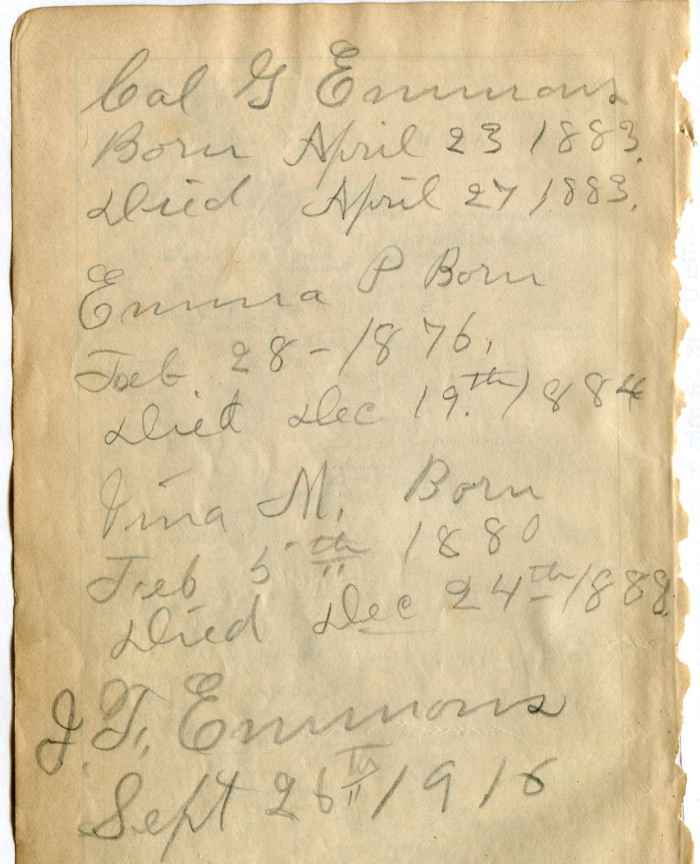 Cal G Emmons
Born April 23 1883.
Died April 27 1883.
Emma P Born
Feb 28-1876.
Died Dec 19.th 1884
M. Born
Feb 5th 1880
Died Dec 24th 1888.
J.T. Emmons
Sept 26th 1916